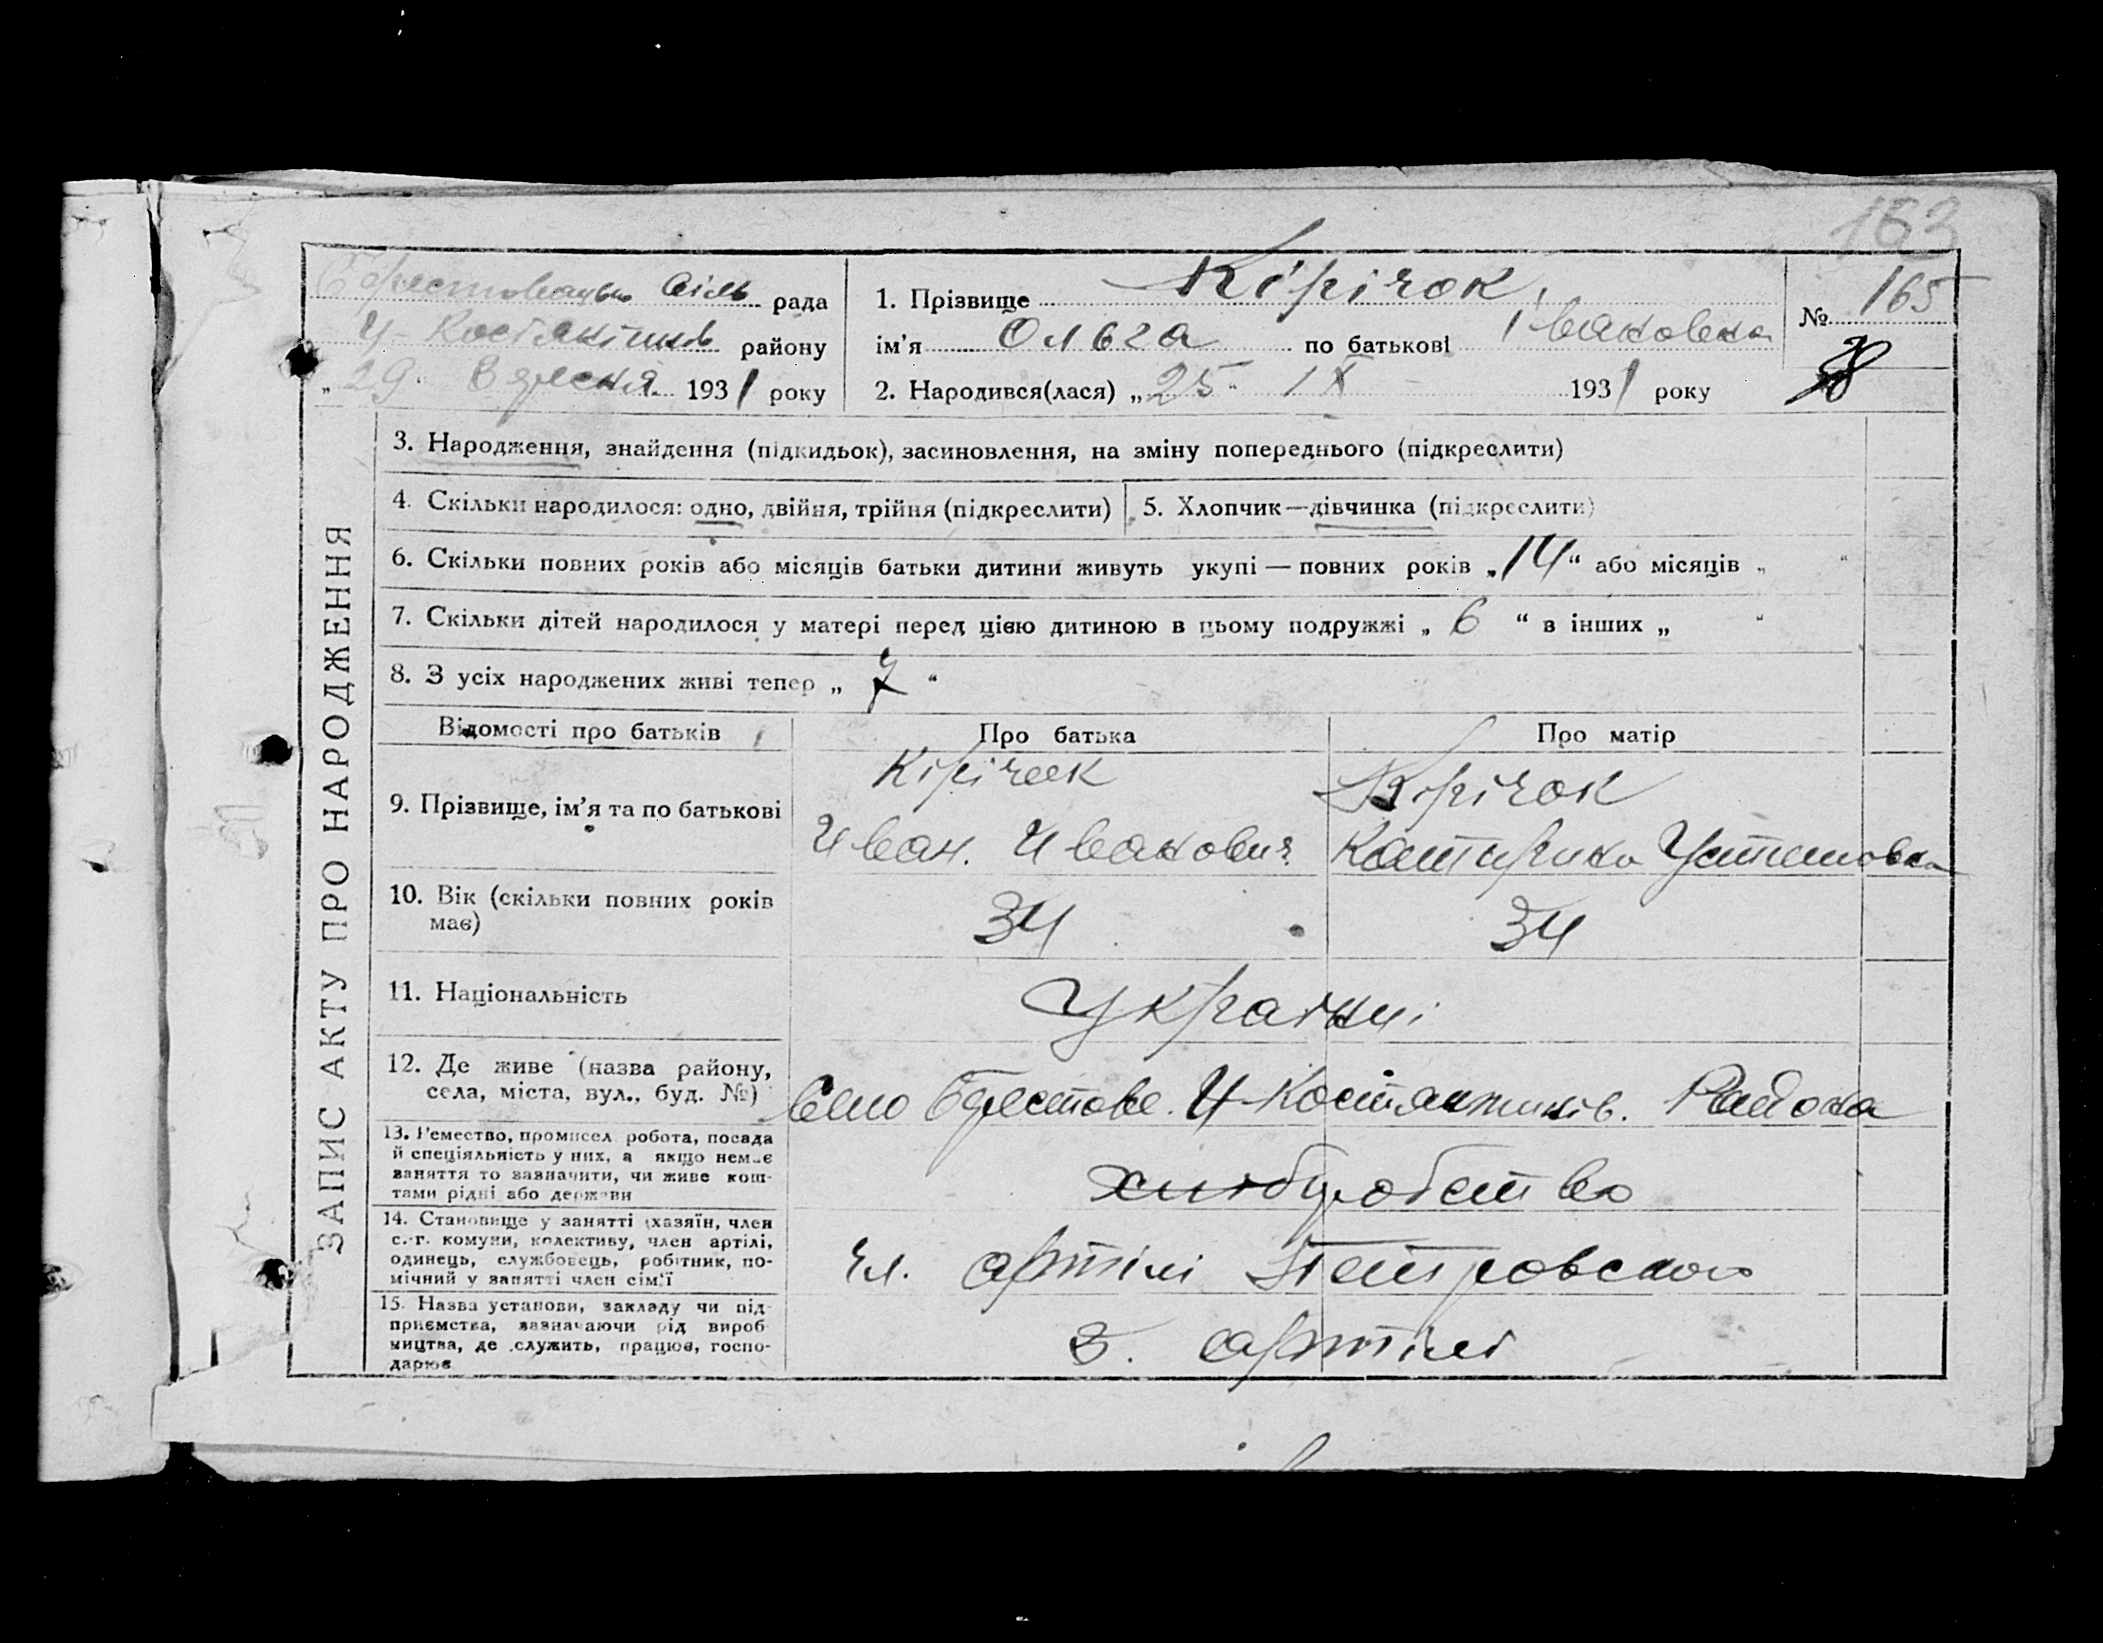 163
Берестовацька сіль рада
Ч-Костянтинів району
„29“ Вересня 1931 року
1. Прізвище Кірічок,
ім’я Ольга по батькові Івановна
2. Народився(лася) „25“ IX 1931 року
№ 165
ЗАПИС АКТУ ПРО НАРОДЖЕННЯ
3. Народження, знайдення (підкидьок), засиновлення, на зміну попереднього (підкреслити)
4. Скільки народилося: одно, двійня, трійня (підкреслити)
5. Хлопчик—дівчинка (підкреслити)
6. Скільки повних років або місяців батьки дитини живуть укупі — повних років „14“ або місяців „ “
7. Скільки дітей народилося у матері перед цією дитиною в цьому подружжі „ 6 “ в інших „ “
8. З усіх народжених живі тепер „ 7 “
Відомості про батьків
Про батька
Про матір
9. Прізвище, ім’я та по батькові
Кірічек
Иван. Иванович
Кірічок
Катирина Устимовна
10. Вік (скільки повних років
має)
34
34
11. Національність
Українці
12. Де живе (назва району,
села, міста, вул., буд. №)
Село Берестове. Ч-Костянтинів. Района
13. Ремество, промисел, робота, посада
й спеціяльність у них, а якщо немає
заняття то зазначити, чи живе кош-
тами рідні або держави
хлібуробство
14. Становище у занятті (хазяїн, член
с.-г. комуни, колективу, член артілі,
одинець, службовець, робітник, по-
мічний у занятті член сім’ї
Чл. артілі Петровского
15. Назва установи, закладу чи під-
приємства, зазначаючи рід вироб-
ництва, де служить, працює, госпо-
дарює
З. артілі